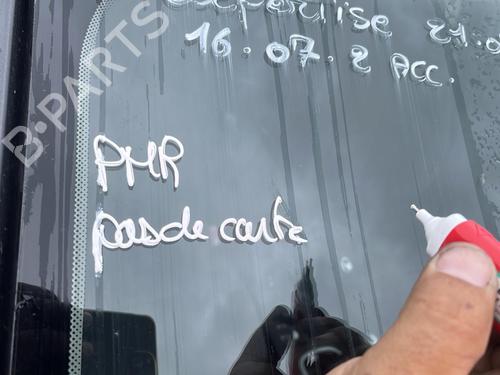 expertise 21.0
16.07. 2 Acc.
PMR
pas de carte
B-PARTS